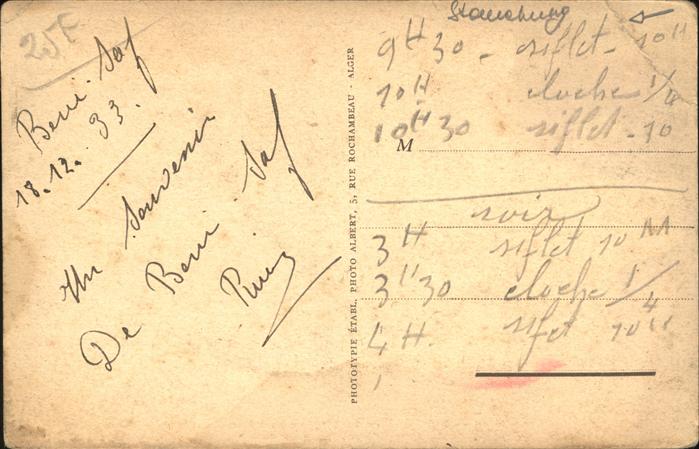 25F
Beni-Saf
18.12.33.
Un Souvenir
De Beni Saf
PHOTOTYPIE ÉTABL. PHOTO ALBERT, 5, RUE ROCHAMBEAU - ALGER
9H30 - siflet - 10H
10H cloche 1/4
10H30 siflet - 10
M
soir
3H siflet 10 M
3H30 cloche 1/4
4H. siflet 10H